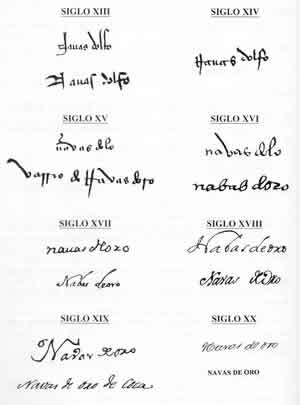 SIGLO XIII
Navas dolfo
Navas dolfo
SIGLO XIV
Navas dolfo
SIGLO XV
navas de Navas doso
SIGLO XVI
nabas
nabas doro
SIGLO XVII
nauas doro
Nabas de oro
SIGLO XVIII
Nabas de oro
Navas de Oro
SIGLO XIX
Navas de oro
Navas de oro de Coca
SIGLO XX
Navas de oro
NAVAS DE ORO